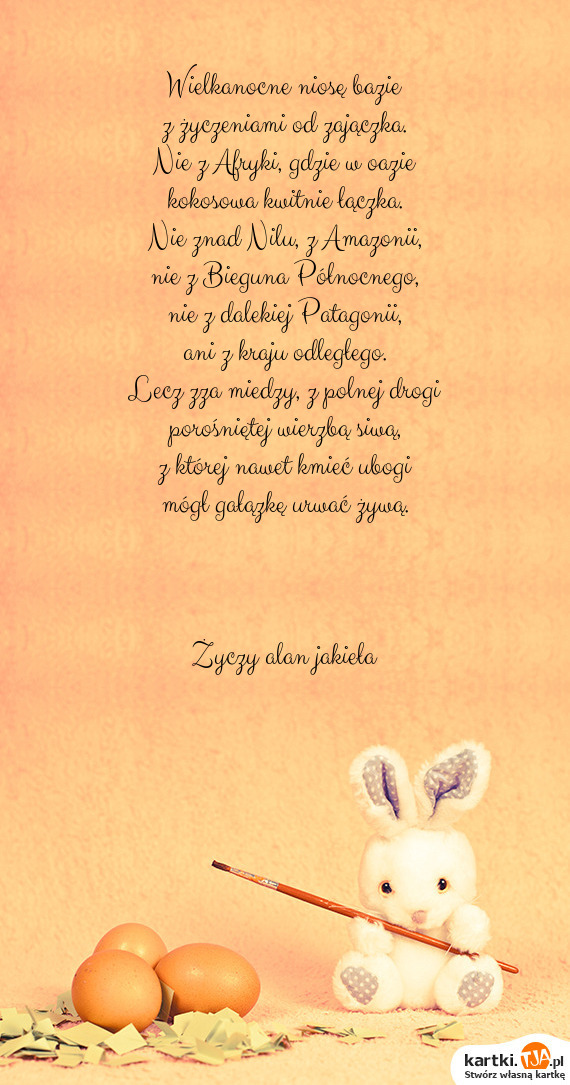 Wielkanocne niosę bazie
z życzeniami od zajączka.
Nie z Afryki, gdzie w oazie
kokosowa kwitnie łączka.
Nie znad Nilu, z Amazonii,
nie z Bieguna Północnego,
nie z dalekiej Patagonii,
ani z kraju odległego.
Lecz zza miedzy, z polnej drogi
porośniętej wierzbą siwą,
z której nawet kmieć ubogi
mógł gałązkę urwać żywą.
Życzy alan jakieła
kartki.TJA.pl
Stwórz własną kartkę